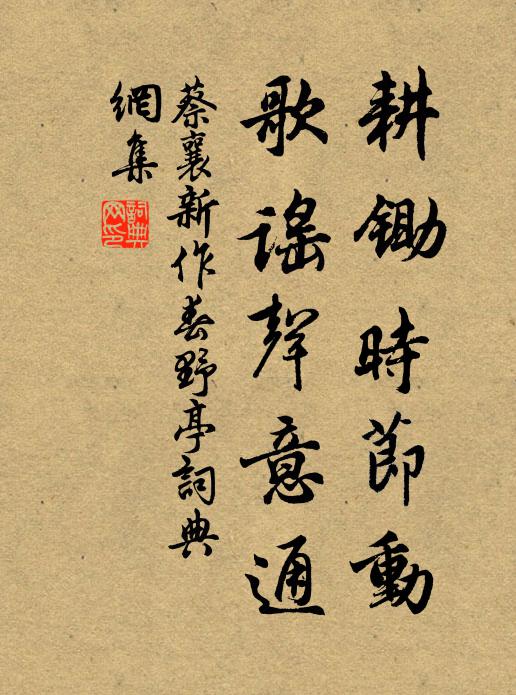 耕鋤時節動
歌謠聲意通
蔡襄新作春野亭詞典
網集
詞典
网印